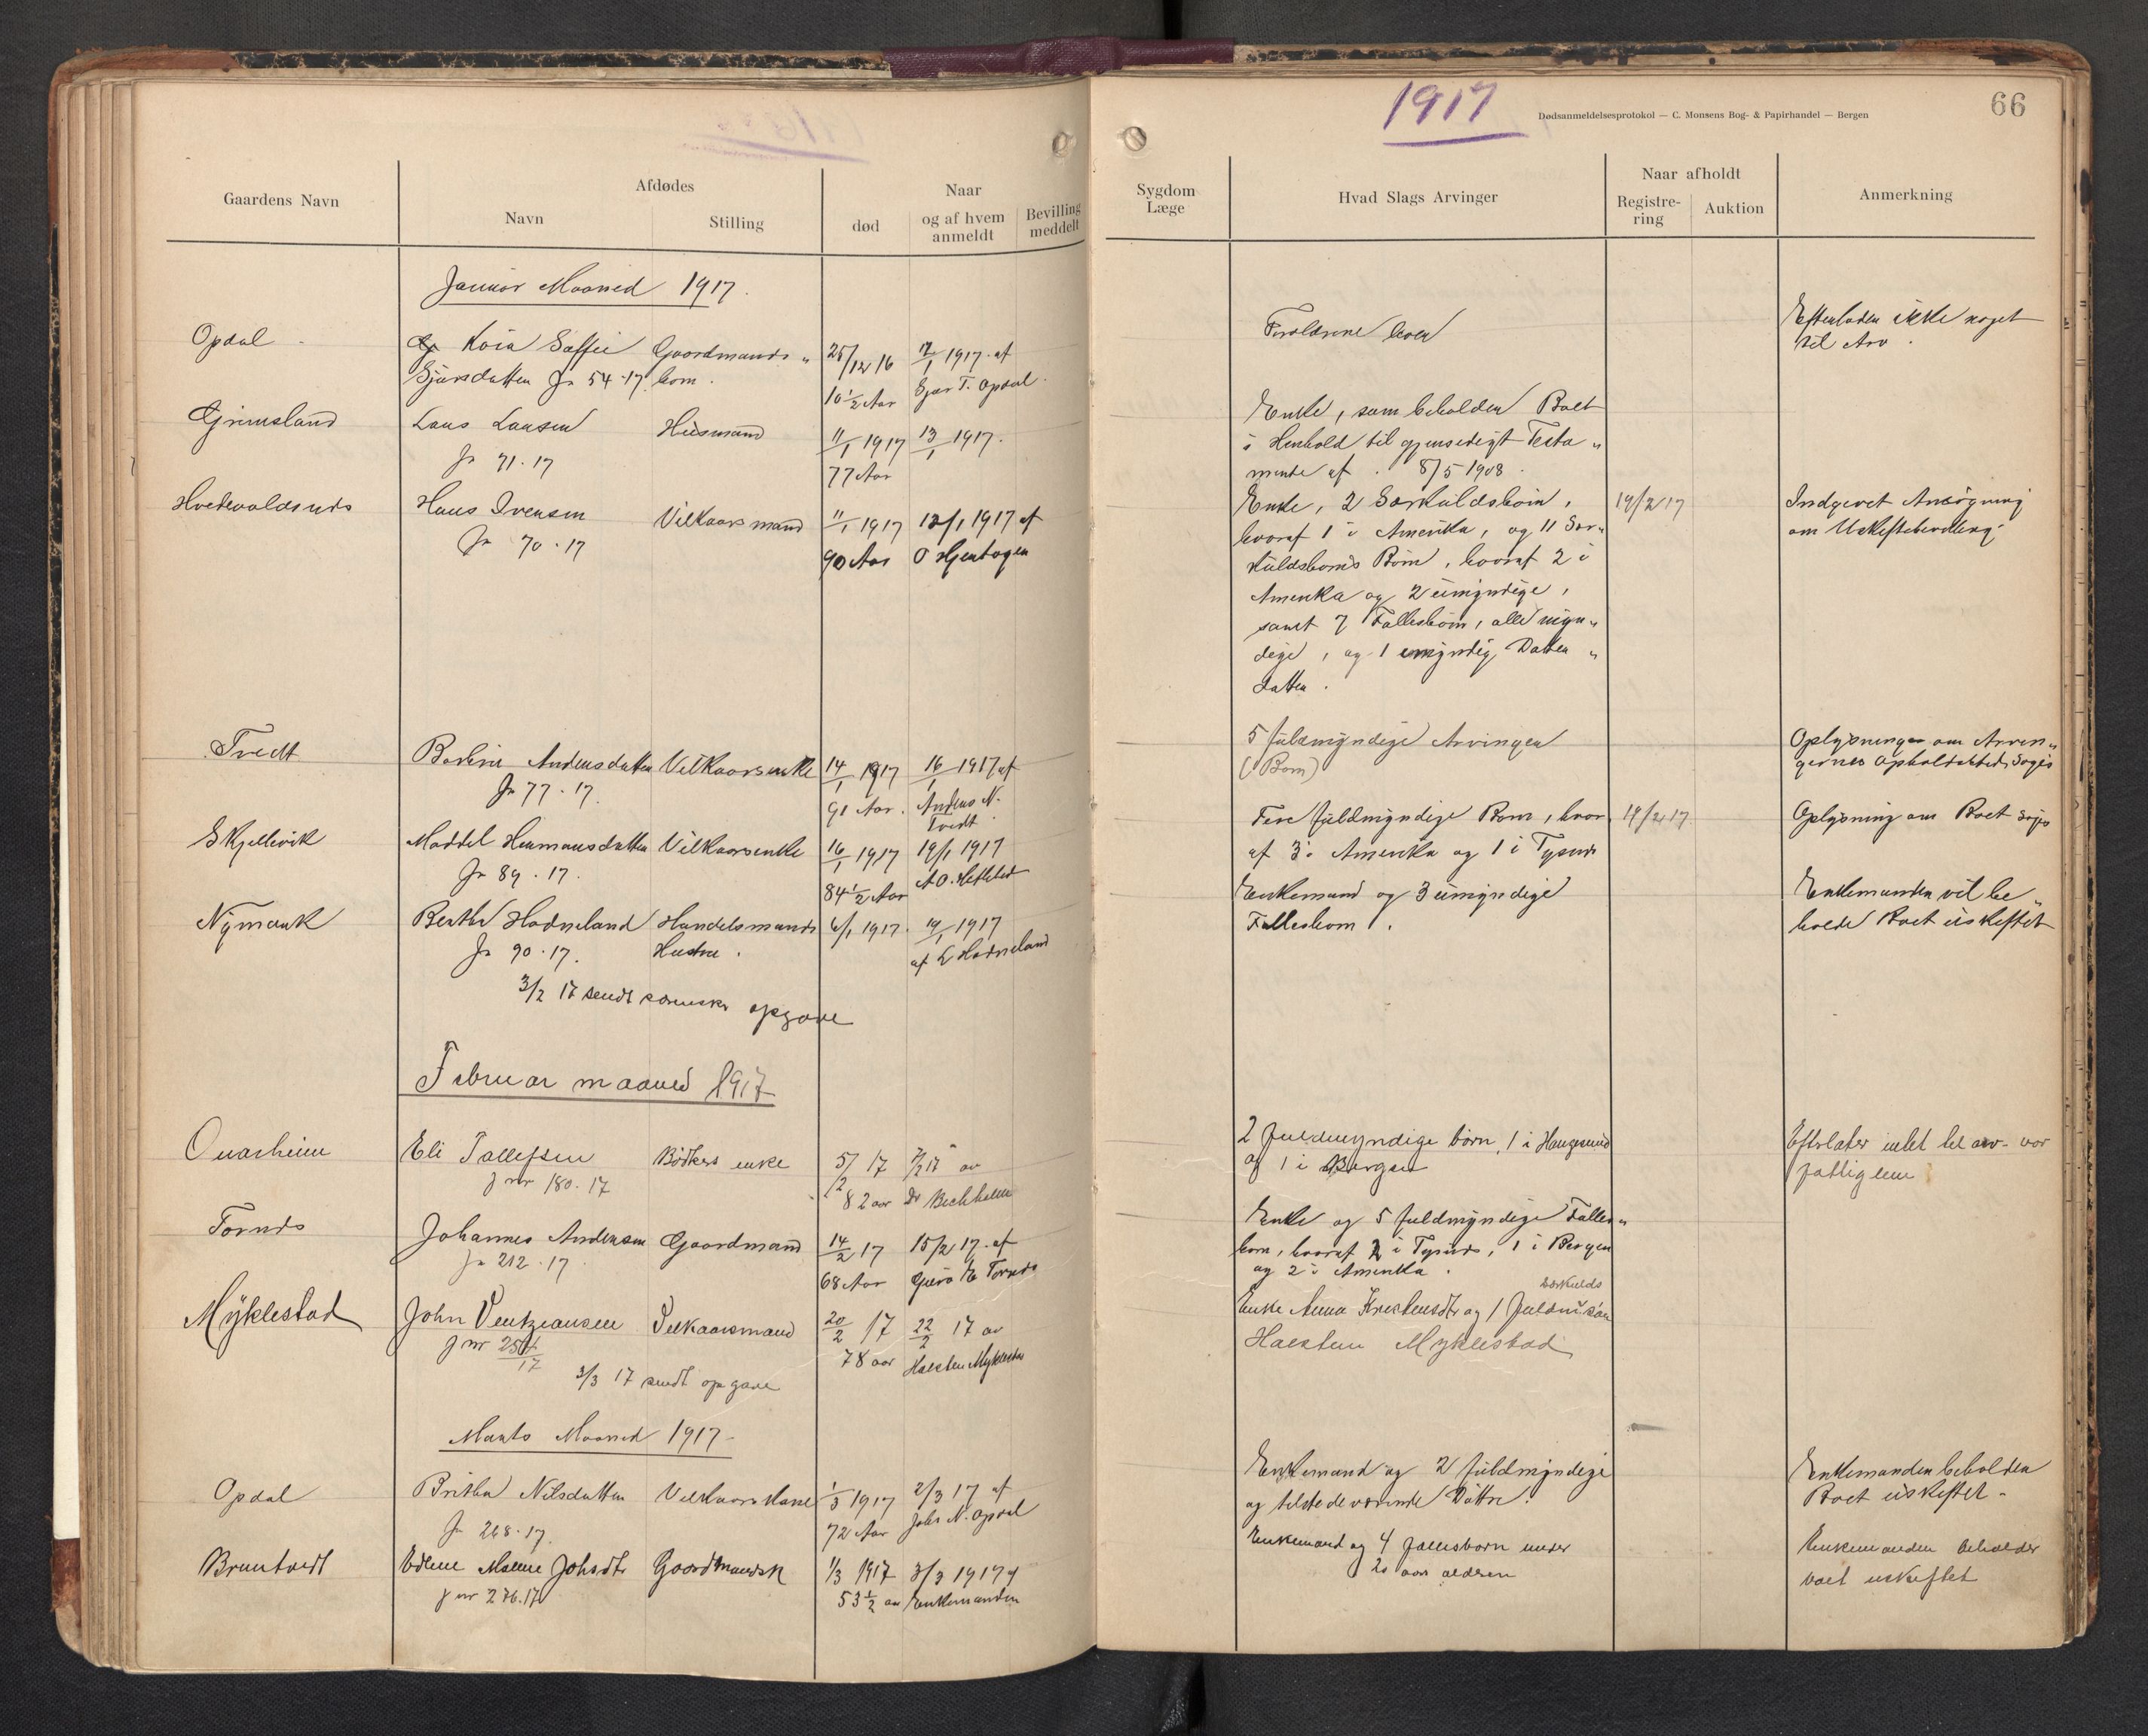 1917
Dødsanmeldelsesprotokol — C. Monsens Bog- & Papirhandel — Bergen
66
Gaardens Navn
Afdødes
Navn
Stilling
Naar
død
og af hvem
anmeldt
Bevilling
meddelt
Sygdom
Læge
Hvad Slags Arvinger
Naar afholdt
Registre-
ring
Auktion
Anmerkning
Januar Maaned 1917.
Opdal
Kaia Soffie
Sjursdatter Jr 54-17
Gaardmands„
barn.
25/12 16
10 1/2 Aar
1917. af
Sjur T. Opdal.
Forældrene lever
Efterlader ikke noget
til Arv.
Grimsland
Lars Larsen
Jr 71-17
Husmand
11/1 1917
77 Aar
13/1 1917.
Enke, som beholder Boet
i Henhold til gjensidigt Testa„
mente af 8/5 1908.
Hans Iversen
Jr 70-17
Vilkaarsmand
11/1 1917
90 Aar
12/1 1917 af
O Hjertagen
Enke, 2 Særkuldsbørn,
hvoraf 1 i Amerika, og 11 Sær„
kuldsbørns Børn, hvoraf 2 i
Amerika og 2 umyndige,
samt 7 Fællesbørn, alle myn„
dige, og 1 umyndig Datter„
datter.
19/2 17
Indgivet Ansøgning
om Uskiftebevilling.
Tvedt
Andersdatter
Jr 77-17.
Vilkaarsenke
14/1 1917
91 Aar.
16/1 1917 af
Anders N.
Tvedt.
5 fuldmyndige Arvinger
(Børn)
Oplysninger om Arvin„
gernes Opholdssted søges
Skjellevik
Maddel Hermansdatter
Jr 89-17.
Vilkaarsenke
16/1 1917
84 1/2 Aar
19/1 1917
Fire fuldmyndige Børn, hvor
af 3 i Amerika og 1 i Tysnes
19/2 17.
Oplysning om Boet søges
Nymark
Berthe Hodneland
Jr 90-17.
Handelsmands
Hustru.
6/1 1917.
19/1 1917
af L Hodneland
Enkemand og 3 umyndige
Fællesbørn.
Enkemanden vil be„
holde Boet uskiftet
3/2 17 sendt opgave
Februar maaned 1917
Onarheim
Eli Tollefsen
J nr 180-17
Bødkers enke
5/2 17
82 aar
7/2 17 av
Dr Bechholm
2 fuldmyndige børn, 1 i Haugesund
og 1 i Bergen
Efterlater intet til arv - var
fattiglem
Tornes
Johannes Andersen
Jr 212-17
Gaardmand
14/2 17
68 Aar
15/2 17. af
Enke og 5 fuldmyndige Fælles„
børn, hvoraf 2 i Tysnes, 1 i Bergen
og 2 i Amerika.
Myklestad
John Ventzeansen
J nr 254/17
Vilkaarsmand
20/2 17
78 aar
22/2 17 av
Halsten Myklestad
særkulds
Enke Anna Kristensdtr og 1 fuldm. søn
Halsten Myklestad
3/3 17 sendt opgave
Marts Maaned 1917-
Opdal
Britha Nilsdatter
Jr 268-17.
Vilkaarskone
1/3 1917
72 Aar
2/3 17 af
Johs N. Opdal
Enkemand og 2 fuldmyndige
og tilstedeværende Døttre.
Enkemanden beholder
Boet uskiftet.
Bruntvedt
Edlene Malene Johsdtr
J nr 276.17
Gaardmandsk
1/3 1917
53 1/2 aar
3/3 1917 af
Enkemanden
Enkemand og 4 fællesbørn under
20 aars alderen
Enkemanden beholder
boet uskiftet